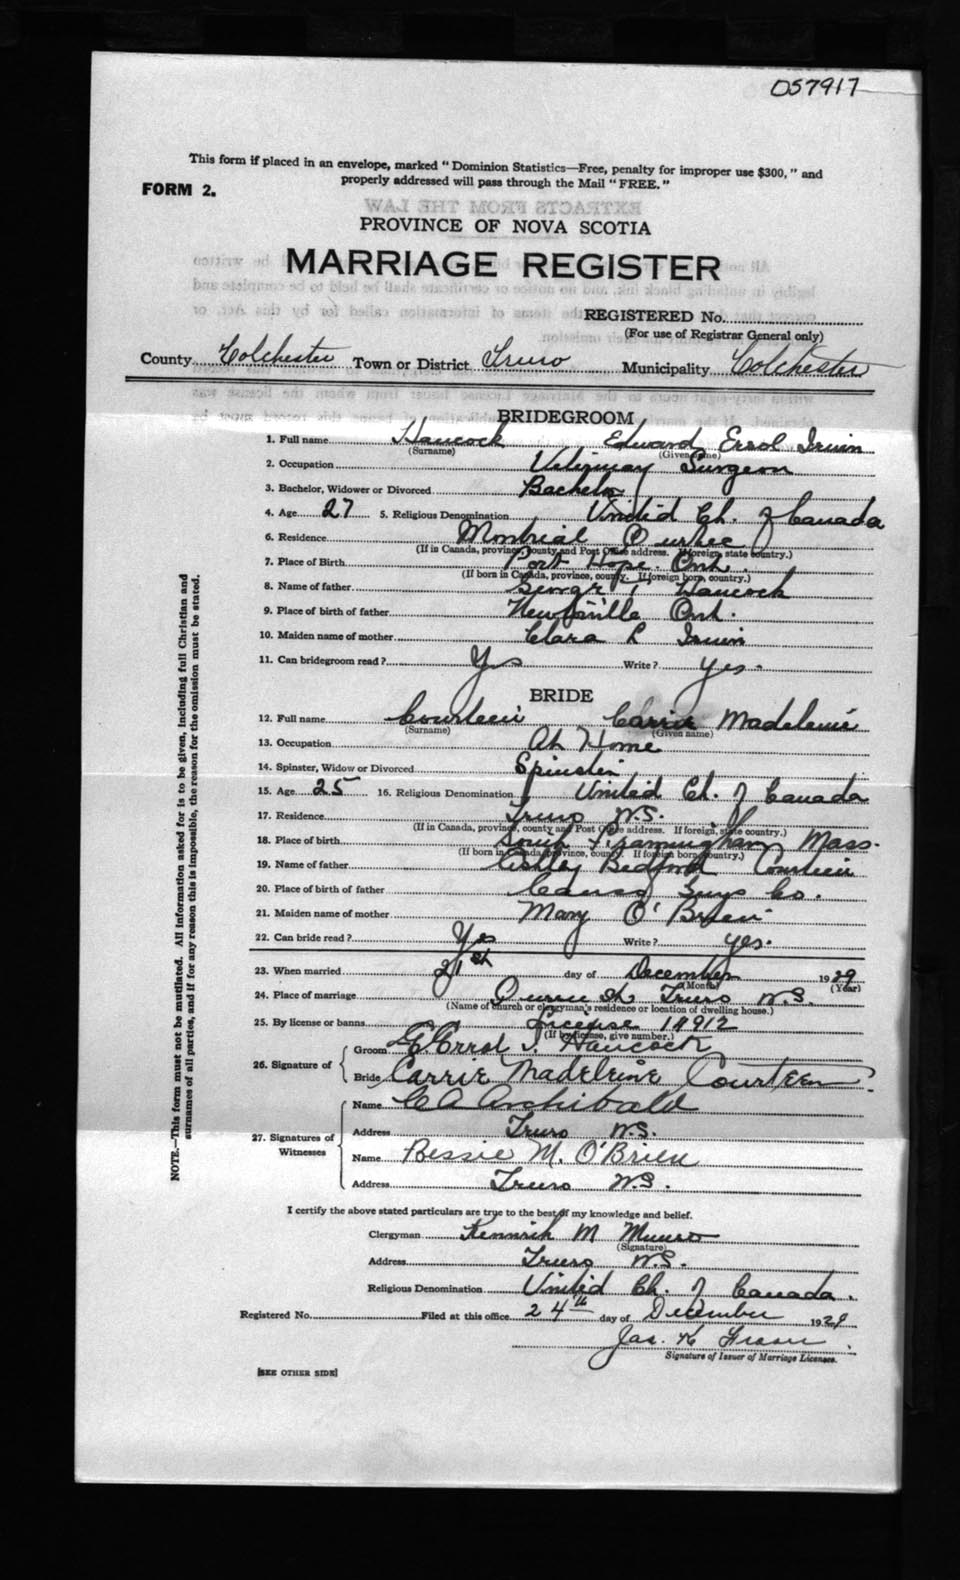 057917
This form if placed in an envelope, marked "Dominion Statistics—Free, penalty for improper use $300," and
properly addressed will pass through the Mail "FREE."
FORM 2.
EXTRACTS FROM THE LAW
PROVINCE OF NOVA SCOTIA
MARRIAGE REGISTER
REGISTERED No.
(For use of Registrar General only)
County Colchester Town or District Truro Municipality Colchester
BRIDEGROOM
1. Full name Hancock Edward Errol Irwin
(Surname) (Given name)
2. Occupation Vetrinary Surgeon
3. Bachelor, Widower or Divorced Bachelor
4. Age 27 5. Religious Denomination United Ch. of Canada
6. Residence Montreal Quebec
(If in Canada, province, county and Post Office address. If foreign state country.)
7. Place of Birth Port Hope Ont.
(If born in Canada, province, county. If foreign born, country.)
8. Name of father George Hancock
9. Place of birth of father Newtonville Ont.
10. Maiden name of mother Clara L Irwin
11. Can bridegroom read? Yes Write? yes.
BRIDE
12. Full name Courteen Carrie Madeleine
(Surname) (Given name)
13. Occupation At Home
14. Spinster, Widow or Divorced Spinster
15. Age 25 16. Religious Denomination United Ch. of Canada
17. Residence Truro N.S.
(If in Canada, province, county and Post Office address. If foreign, state country.)
18. Place of birth South Framingham Mass.
(If born in Canada, province, county. If foreign born, country.)
19. Name of father Ashley Bedford Courteen
20. Place of birth of father Canso Guys Co.
21. Maiden name of mother Mary O'Brien
22. Can bride read? Yes Write? yes.
23. When married 21st day of December 1929
(Month) (Year)
24. Place of marriage Queen St Truro N.S.
(Name of church or clergyman's residence or location of dwelling house.)
25. By license or banns License 14912
(If by license, give number.)
26. Signature of
Groom E. Errol I. Hancock
Bride Carrie Madeleine Courteen
27. Signatures of Witnesses
Name C A Archibald
Address Truro N.S.
Name Bessie M. O'Brien
Address Truro N.S.
I certify the above stated particulars are true to the best of my knowledge and belief.
Clergyman M Munro
(Signature)
Address Truro N.S.
Religious Denomination United Ch. of Canada.
Registered No. Filed at this office 24th day of December 1929
Jas. K Fraser
Signature of Issuer of Marriage Licenses.
[SEE OTHER SIDE]
NOTE.—This form must not be mutilated. All information asked for is to be given, including full Christian and
surnames of all parties, and if for any reason this is impossible, the reason for the omission must be stated.